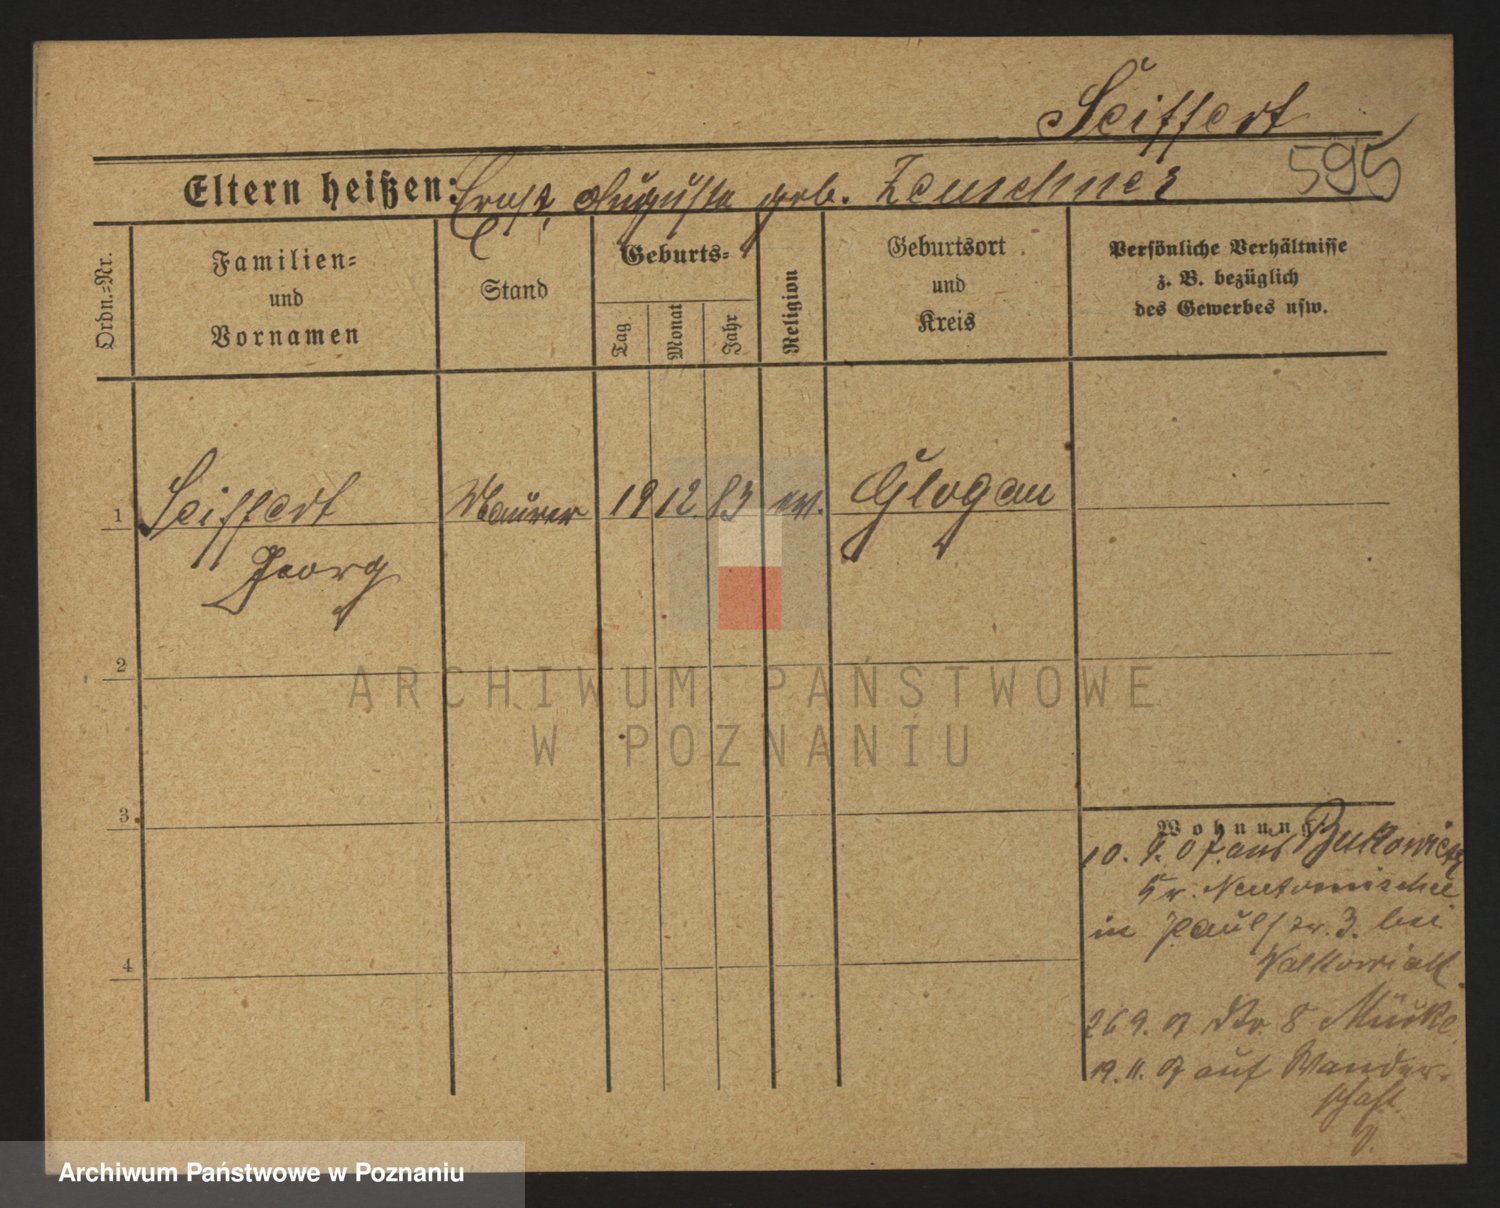 Seiffert
595
Eltern heißen: Ernst, Auguste geb. Zeuschner
Ordn.=Nr.
Familien=
und
Vornamen
Stand
Geburts=
Tag
Monat
Jahr
Religion
Geburtsort
und
Kreis
Persönliche Verhältnisse
z. B. bezüglich
des Gewerbes usw.
1
Seiffert
Georg
Maurer
19
12
83
ev.
Glogau
2
3
4
Wohnung
10. 9. 07. aus Bukowiec
Kr. Neutomischel
in Paulstr. 3. bei
Walkowiak
26 9. 07 Str. 8 Mücke
19. 11. 07 auf Wander-
schaft.
ARCHIWUM PAŃSTWOWE
W POZNANIU
Archiwum Państwowe w Poznaniu